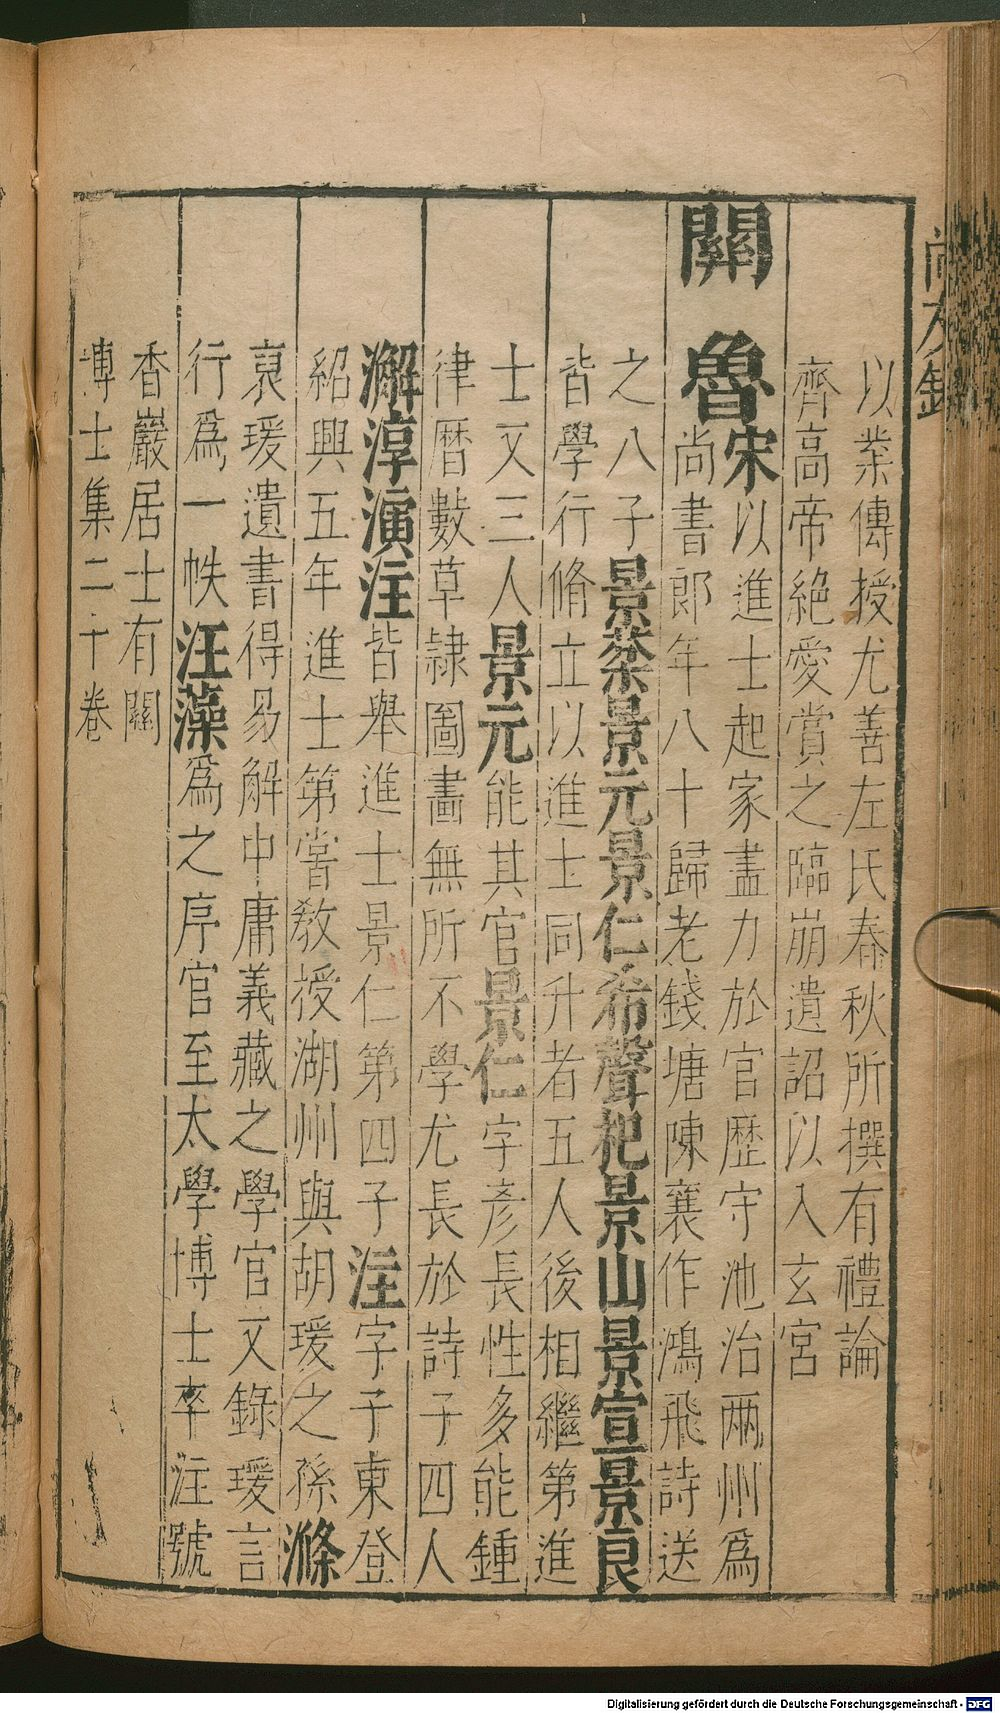 尚友錄
以業傳授尤善左氏春秋所撰有禮論
齊高帝絕愛賞之臨崩遺詔以入玄宮
關 魯宋以進士起家盡力於官歷守池治兩州爲
尚書郎年八十歸老錢塘陳襄作鴻飛詩送
之八子景棻景元景仁希聲杞景山景宣景良
皆學行脩立以進士同升者五人後相繼第進
士又三人景元能其官景仁字彥長性多能鍾
律曆數草隸圖畫無所不學尤長於詩子四人
澥淳演注皆舉進士景仁第四子注字子東登
紹興五年進士第嘗敎授湖州與胡瑗之孫滌
裒瑗遺書得易解中庸義藏之學官又錄瑗言
行爲一帙汪藻爲之序官至太學博士卒注號
香巖居士有關
博士集二十卷
Digitalisierung gefördert durch die Deutsche Forschungsgemeinschaft - DFG